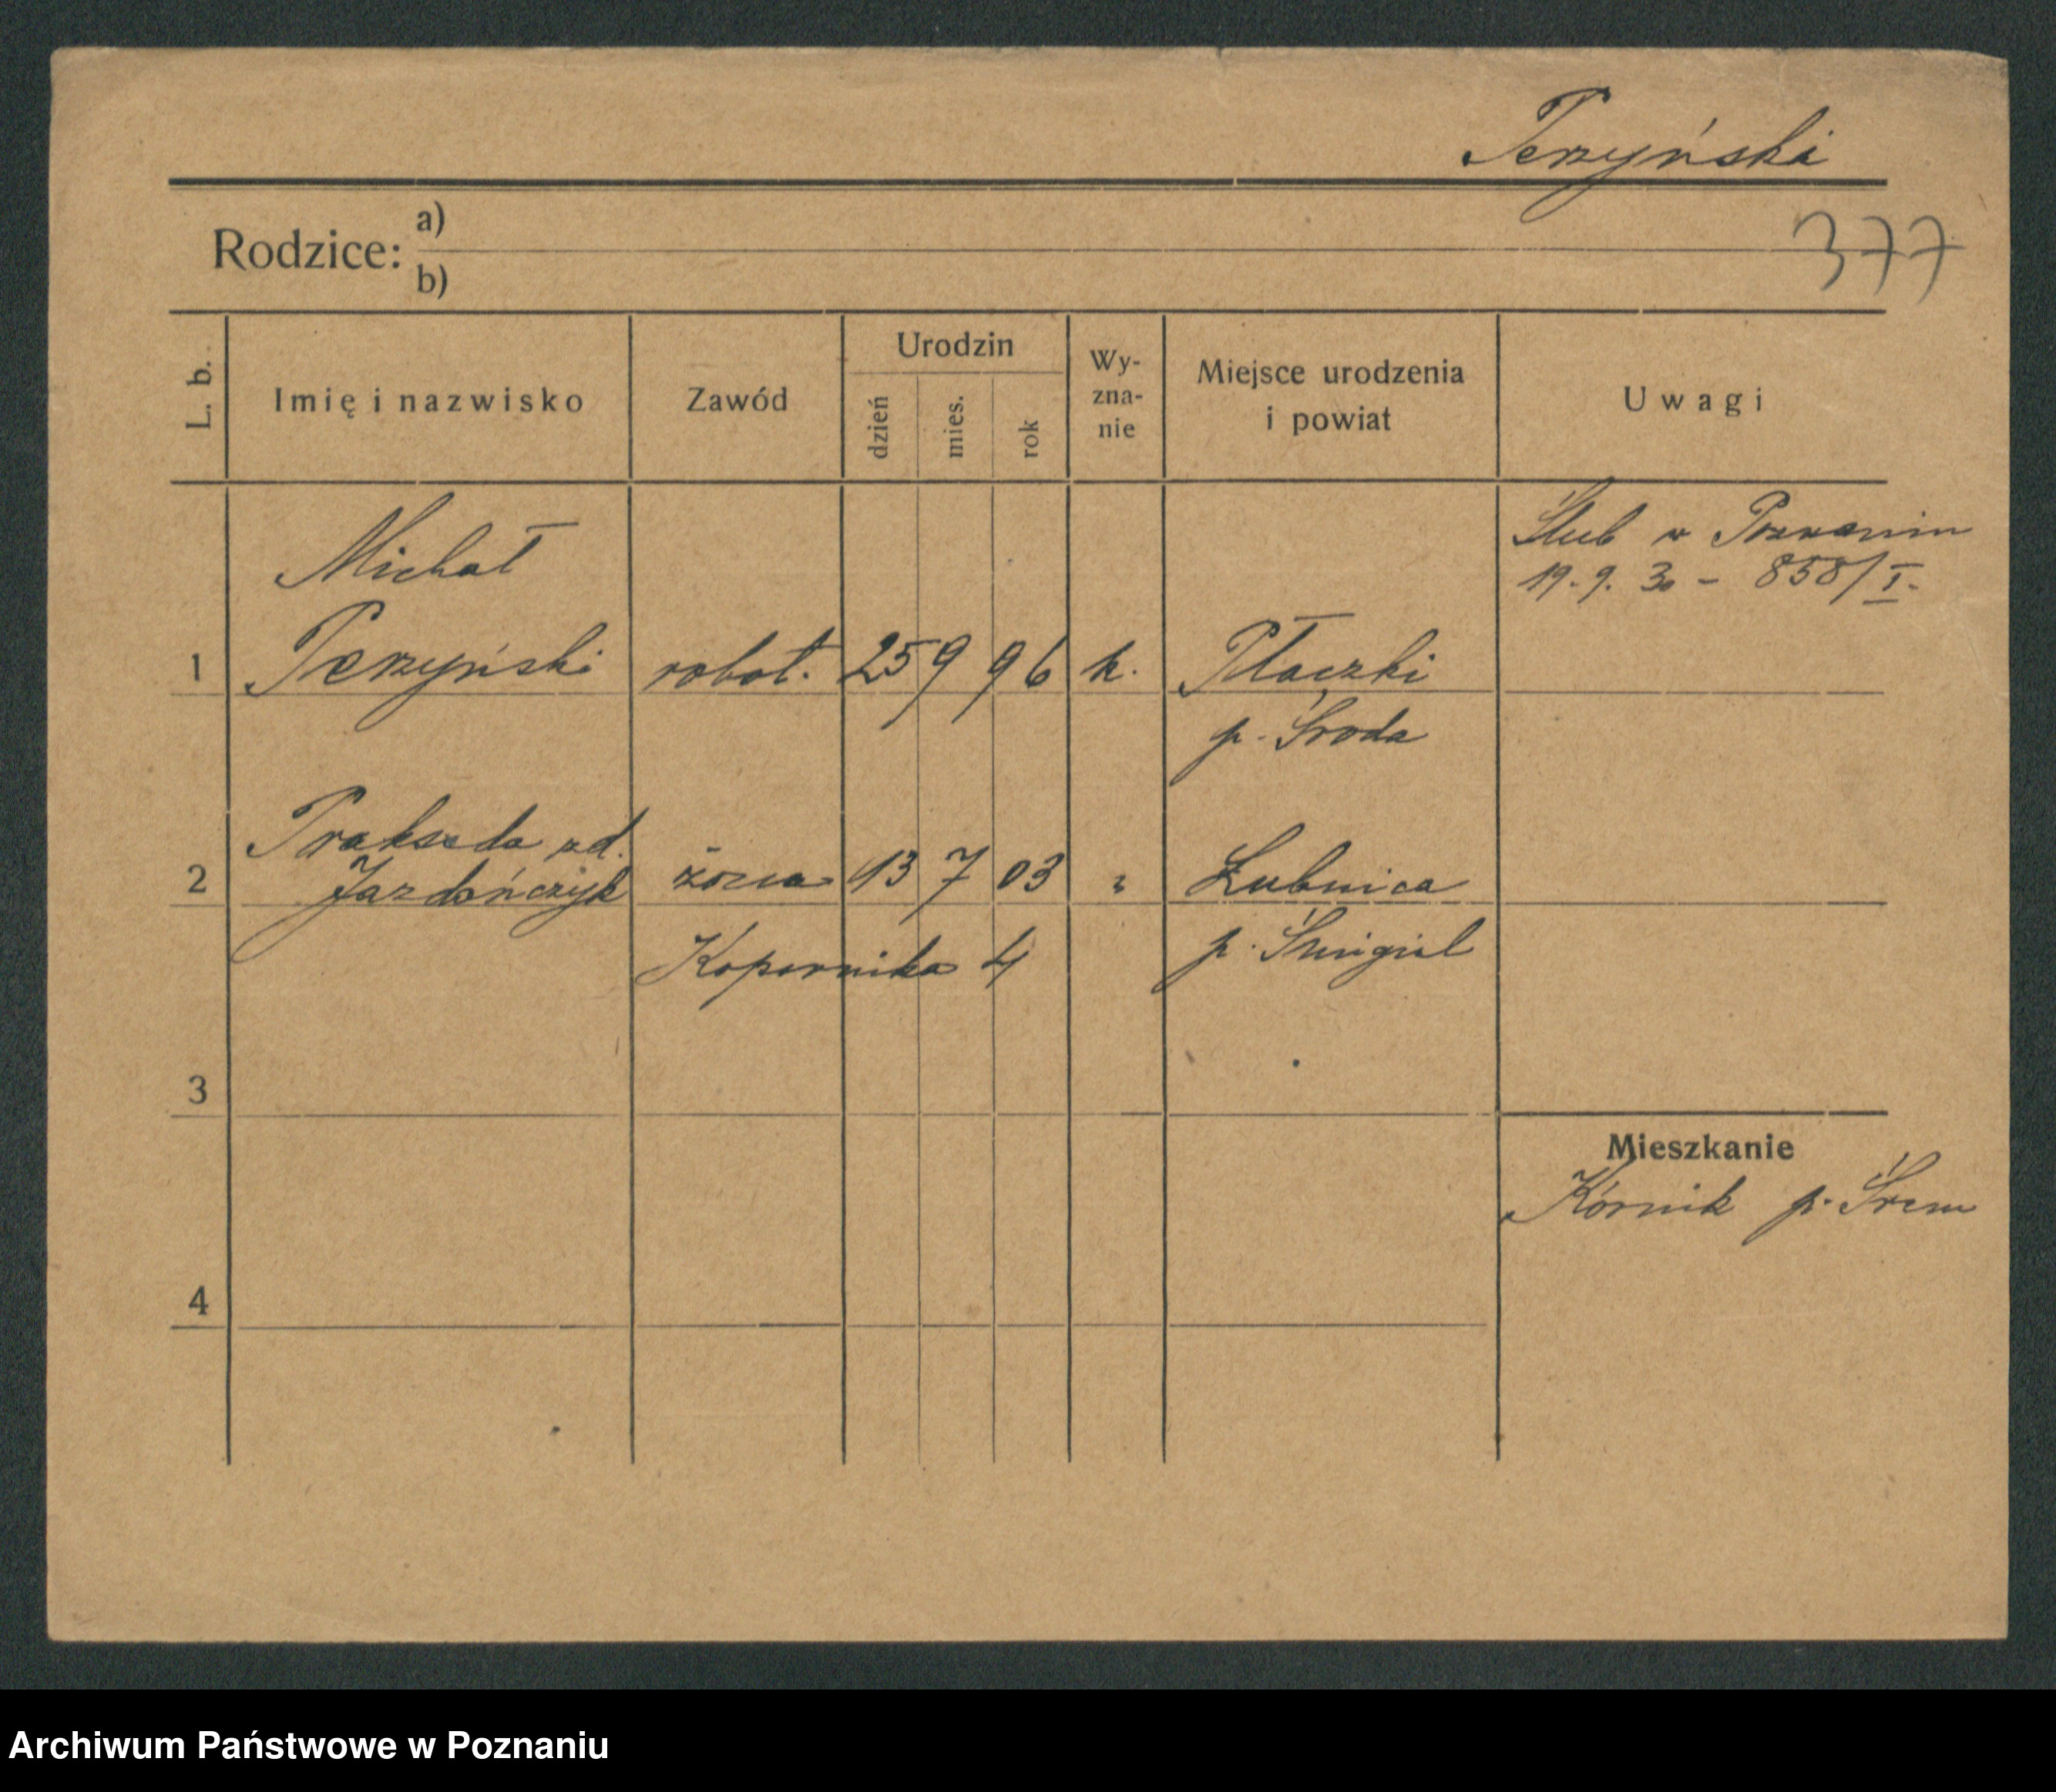 Perzyński
377
Rodzice: a)
b)
L. b.
Imię i nazwisko
Zawód
Urodzin
dzień
mies.
rok
Wy-
zna-
nie
Miejsce urodzenia
i powiat
Uwagi
Ślub w Poznaniu
19. 9. 30 - 858/I.
Michał
1 Perzyński robot. 25 9 96 k. Płaczki
p. Środa
Prakseda zd.
2 Jazdończyk żona 13 7 03 " Łubnica
Kopernika 4 p. Śmigiel
3
Mieszkanie
Kórnik p. Śrem
4
Archiwum Państwowe w Poznaniu